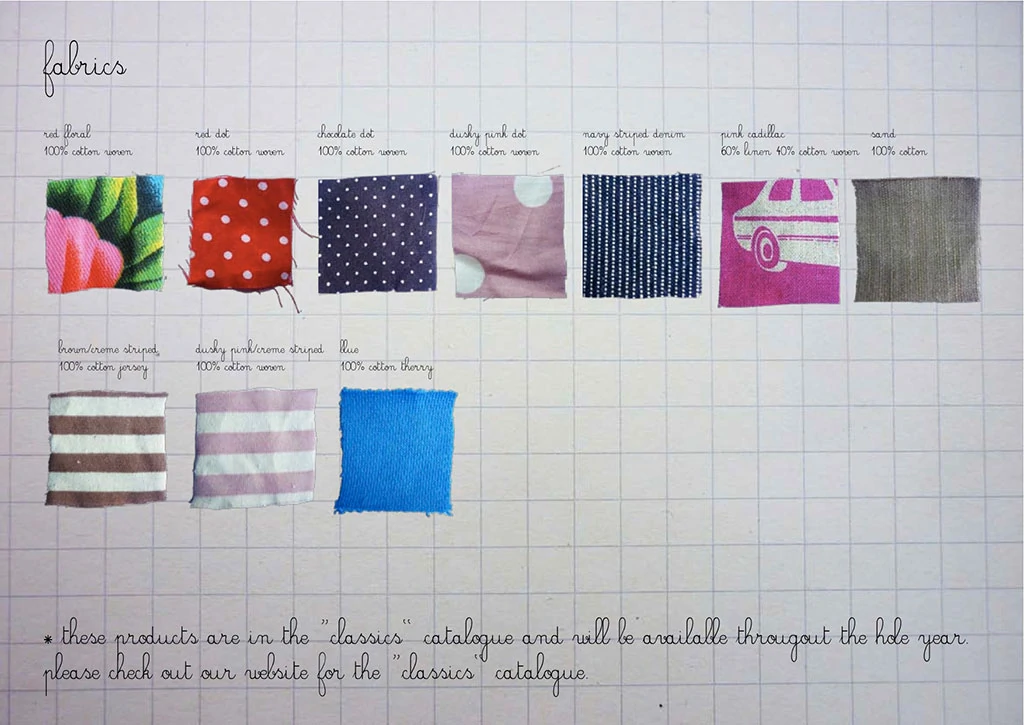 fabrics
red floral
100% cotton woven
red dot
100% cotton woven
chocolate dot
100% cotton woven
dusky pink dot
100% cotton woven
navy striped denim
100% cotton woven
pink cadillac
60% linen 40% cotton woven
sand
100% cotton
brown/creme striped
100% cotton jersey
dusky pink/creme striped
100% cotton woven
blue
100% cotton therry
* these products are in the "classics" catalogue and will be available througout the hole year.
please check out our website for the "classics" catalogue.